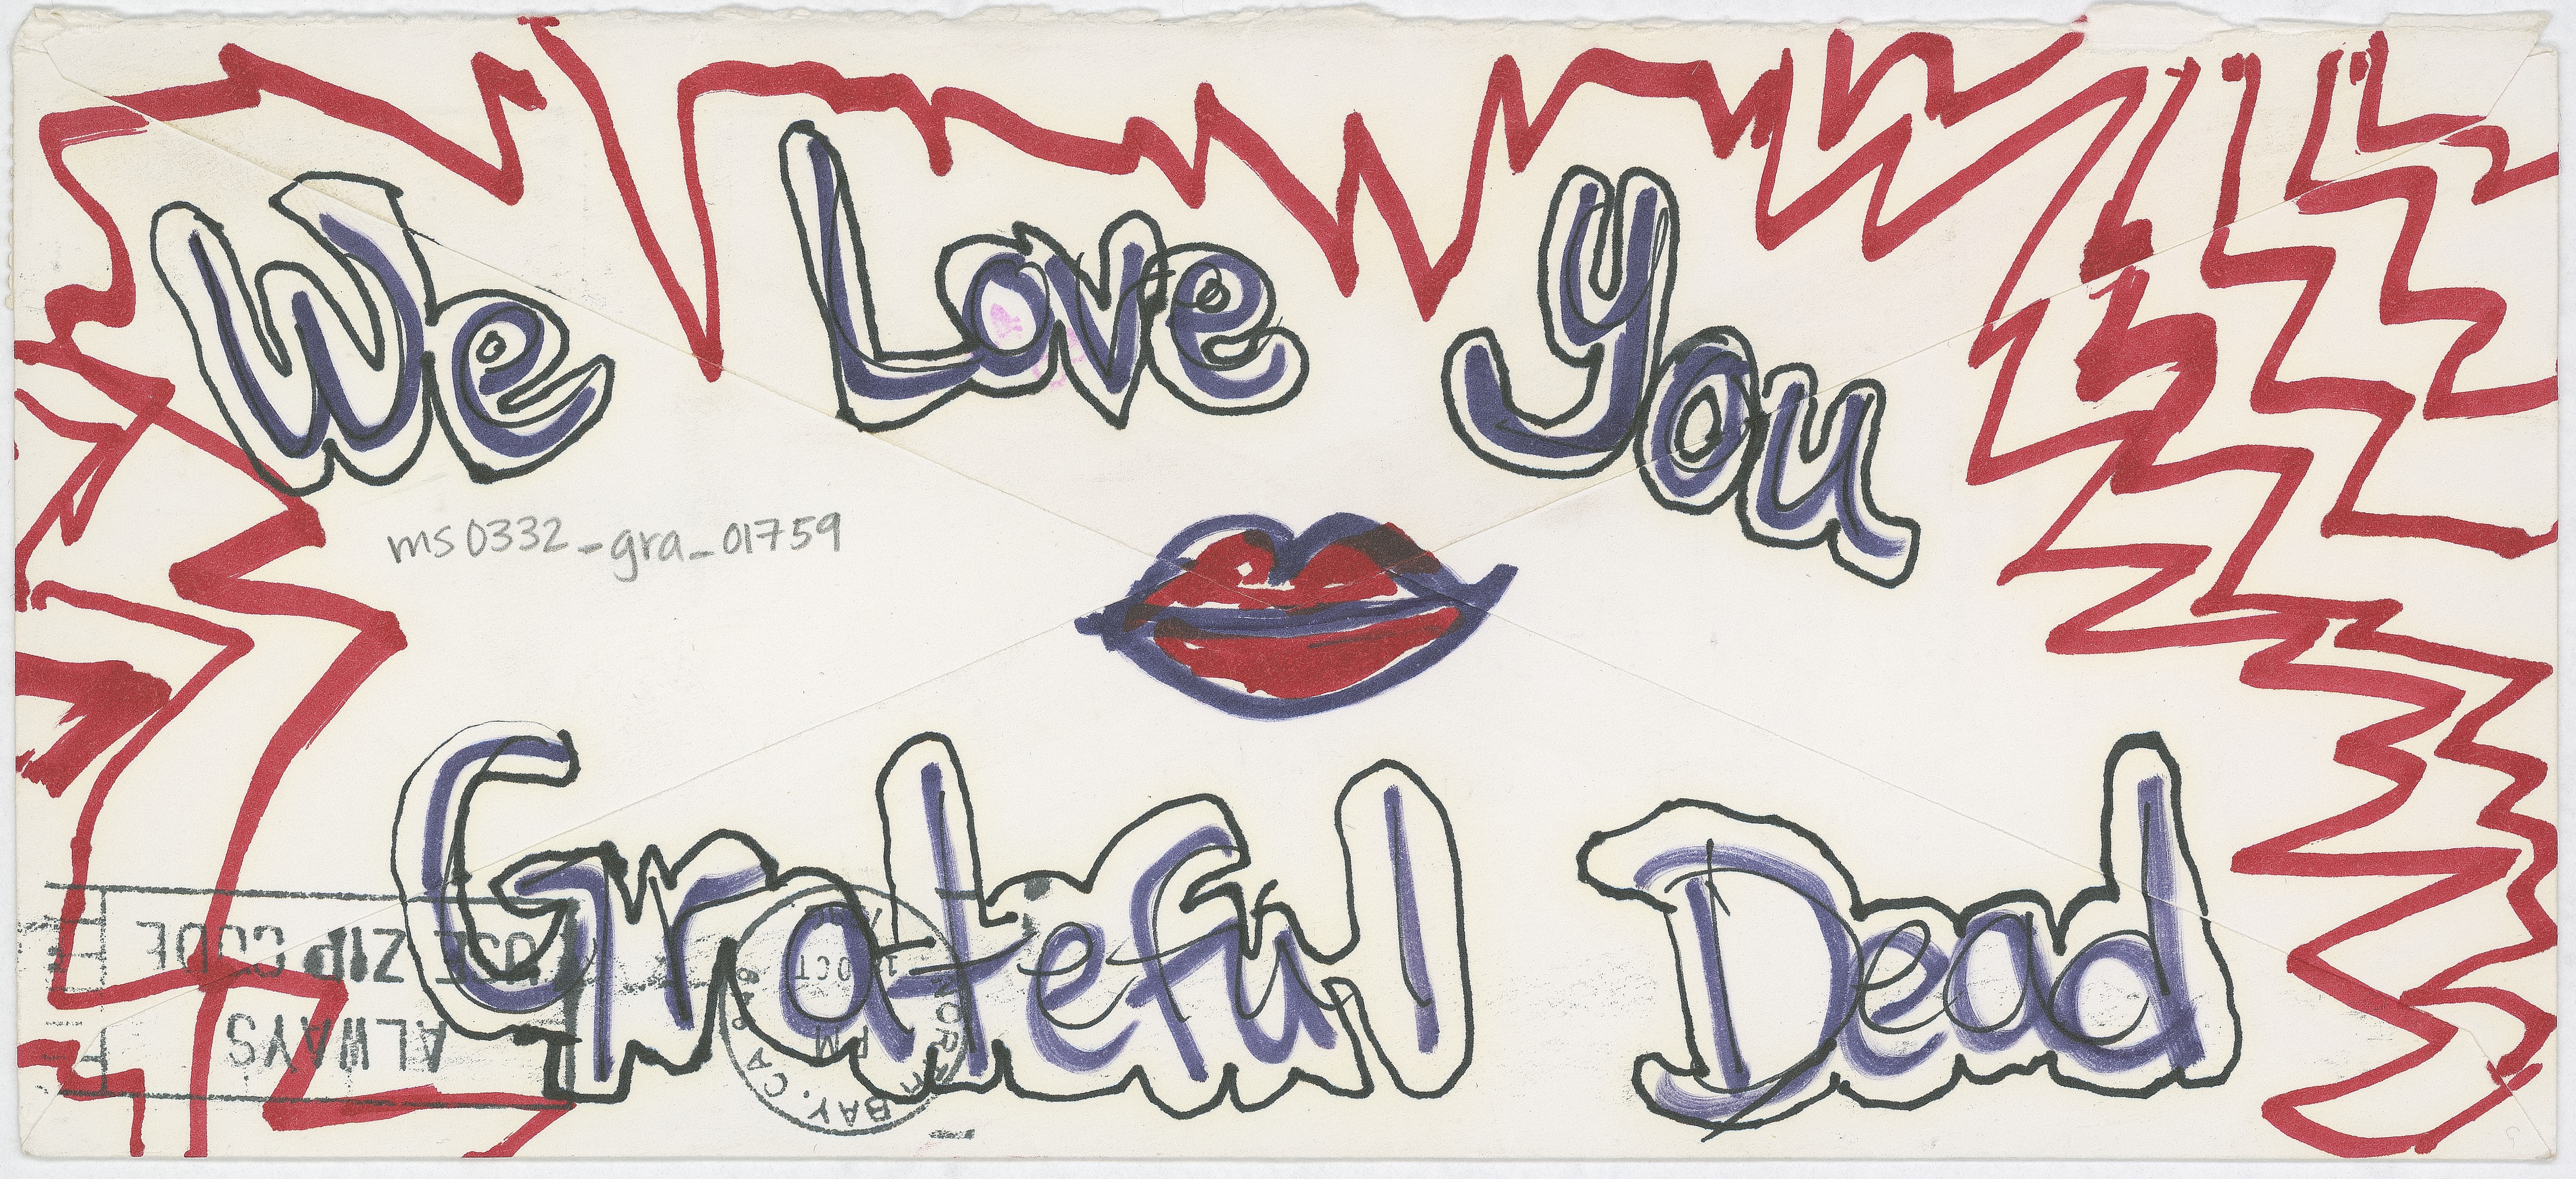 We Love You
ms0332_gra_01759
Grateful Dead
ALWAYS
USE ZIP CODE
BAY. CA
PM
OCT